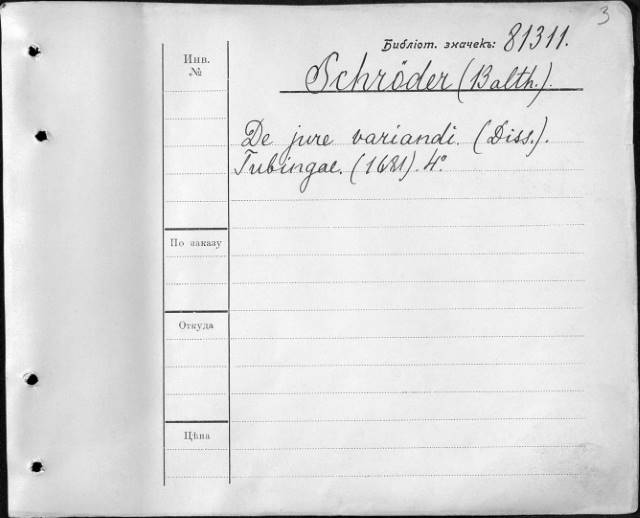 3
Библіот. значекъ: 81311.
Инв.
№
Schröder (Balth.).
De jure variandi. (Diss.).
Tubingae. (1681). 4º
По заказу
Откуда
Цѣна